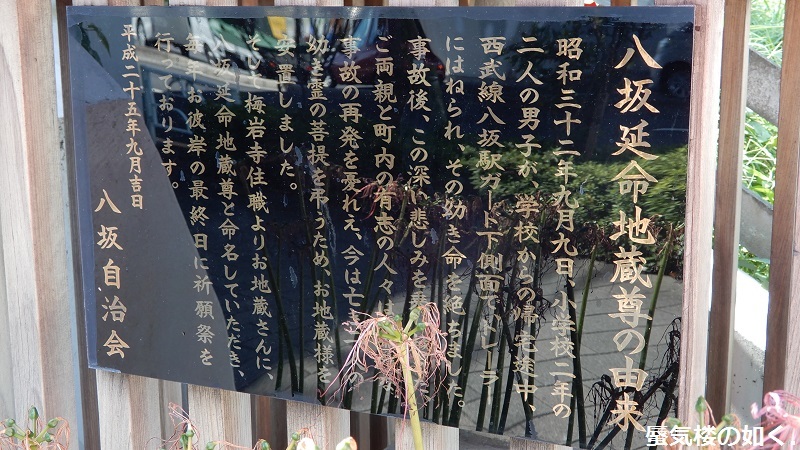 八坂延命地蔵尊の由来
昭和三十二年九月九日、小学校二年の
二人の男子が、学校からの帰宅途中、
西武線八坂駅ガード下側面で、トーラ
にはねられ、その幼き命を絶ちました。
事故後、この深い悲しみを
ご両親と町内の有志の人々
事故の再発を憂れえ、今は亡
幼き霊の菩提を弔うため、お地蔵様を
安置しました。
その上、梅岩寺住職よりお地蔵さんに、
八坂延命地蔵尊と命名していただき、
毎年お彼岸の最終日に祈願祭を
行っております。
平成二十五年九月吉日
八坂自治会
蜃気楼の如く